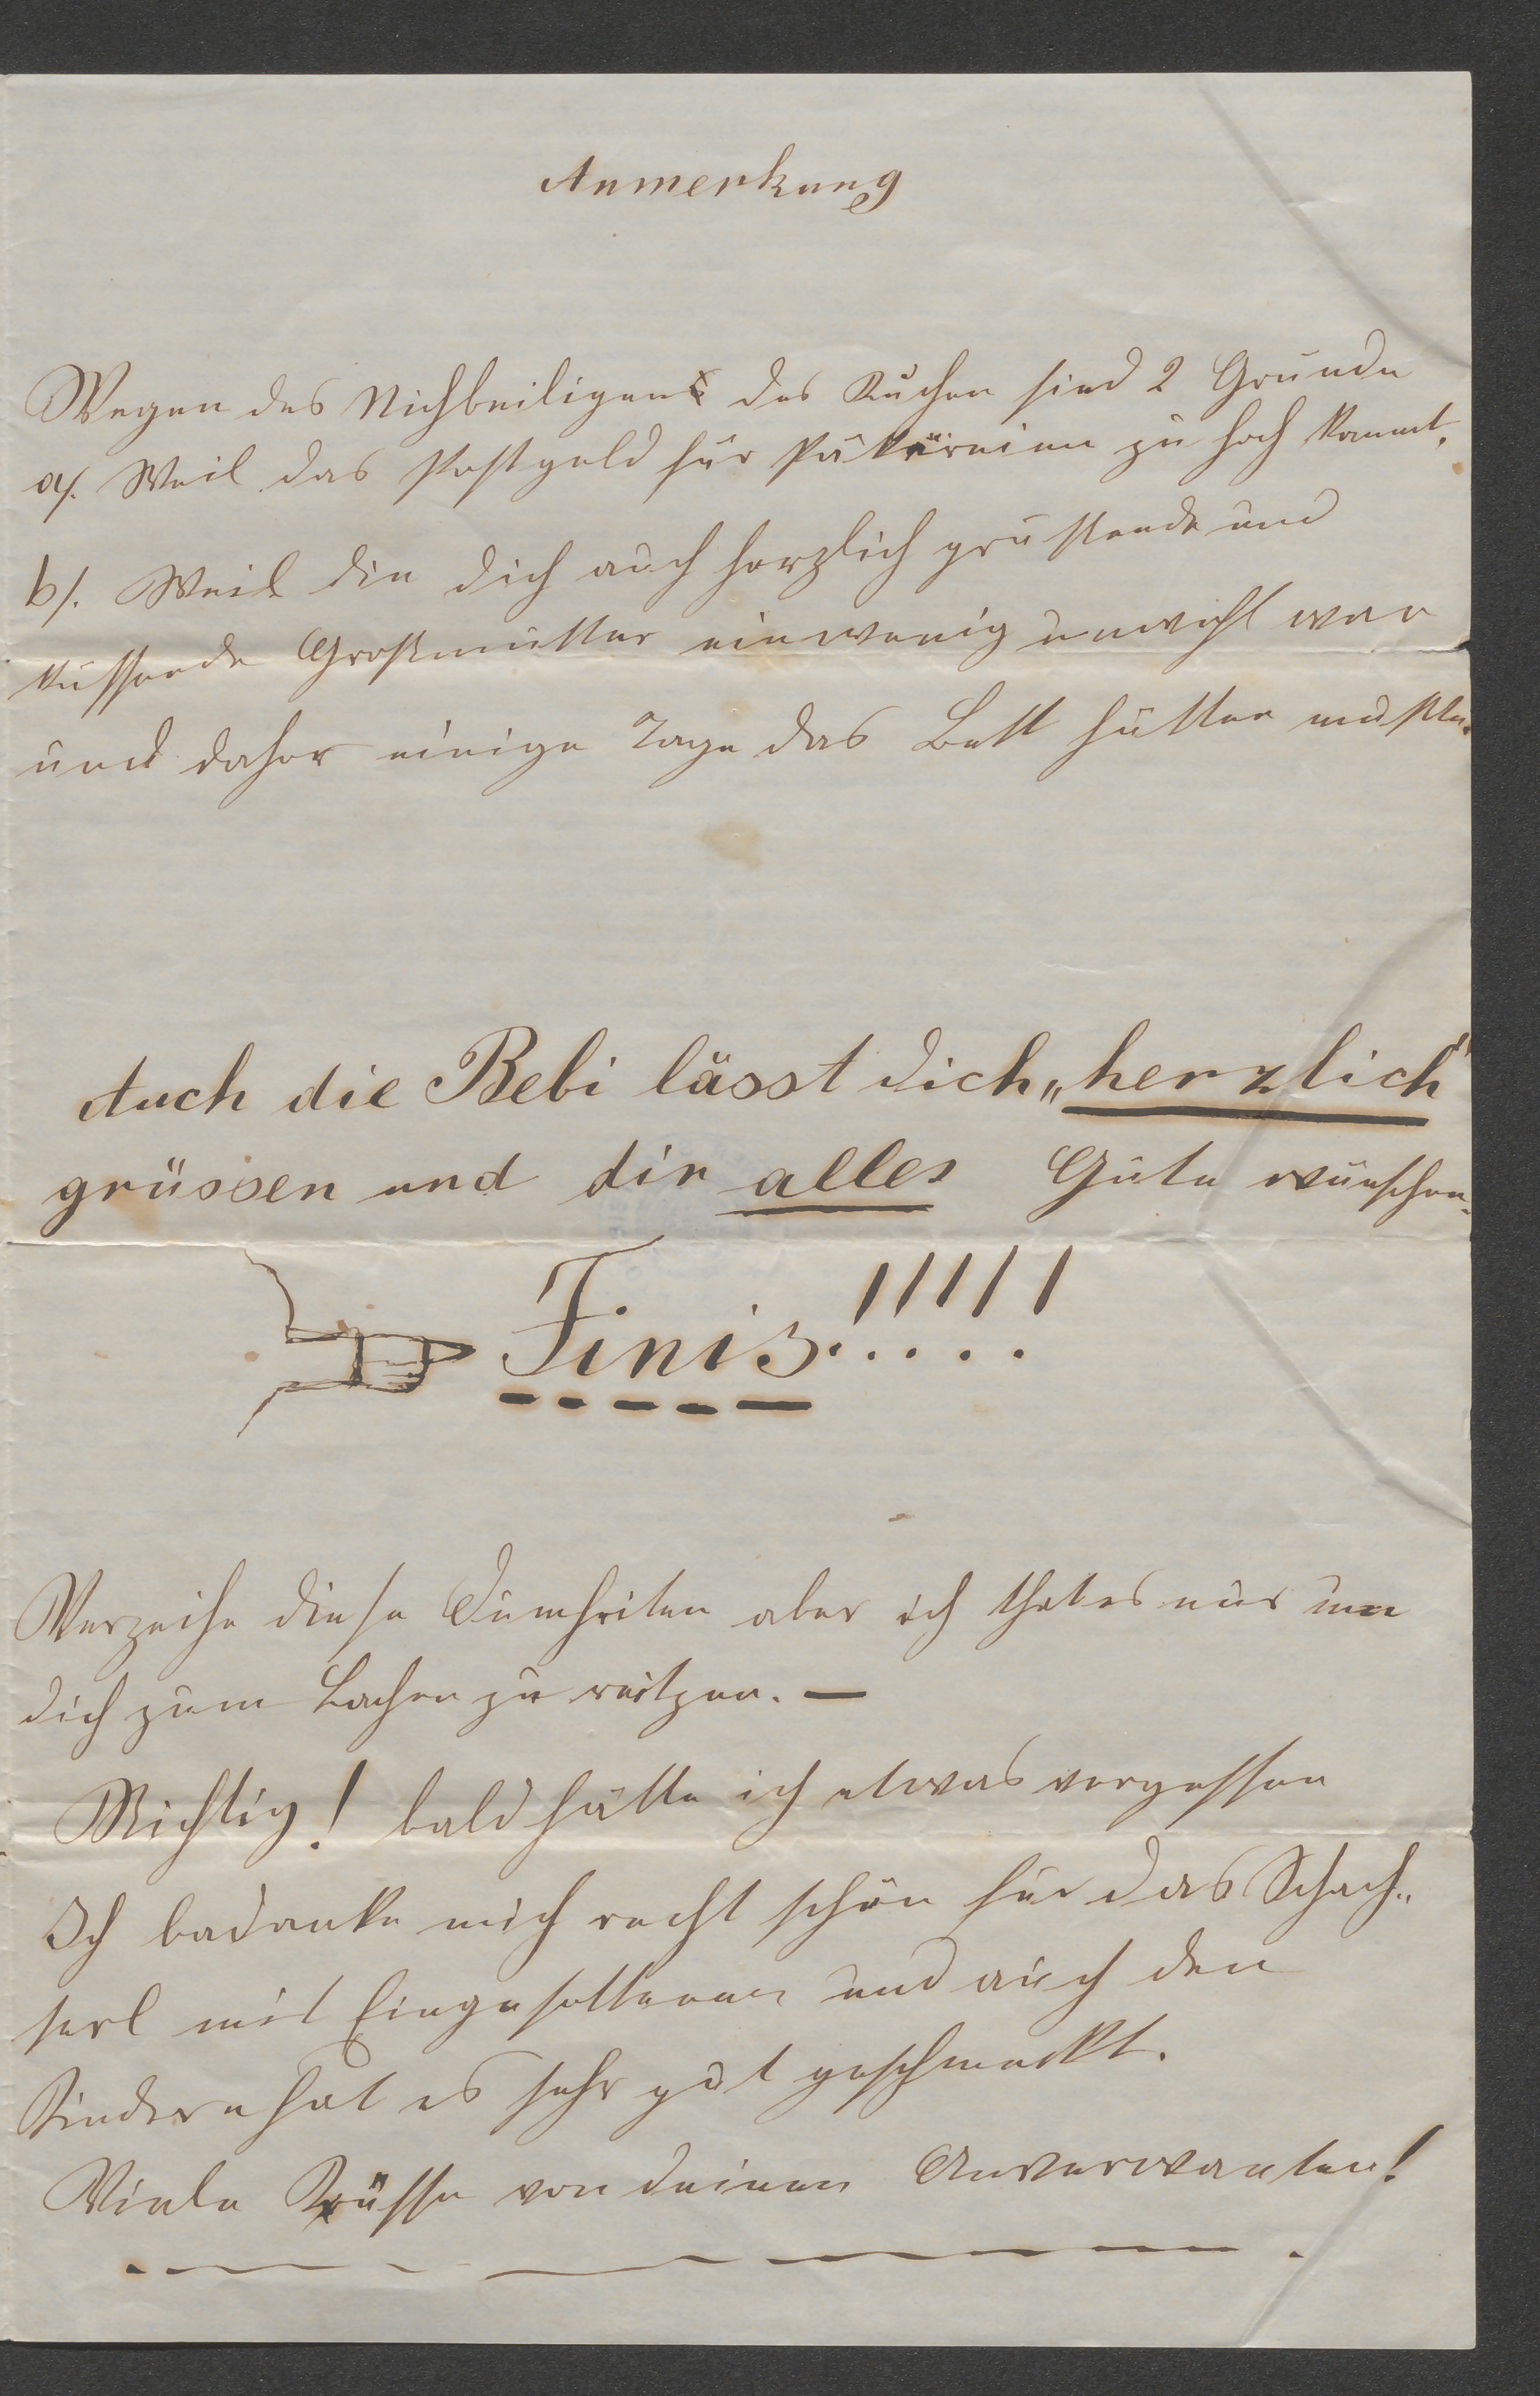 Anmerkung
Wegen des Nichbeiligen des Kuchen sind 2 Grunde
a/. Weil das Postgeld für Päkereien zu hoch kommt.
b/. Weil die dich auch herzlich grüssende und
küssende Großmutter ein wenig unwohl war
und daher einige Tage das Bett hütten mußte.
Auch die Bebi lässt dich „herzlich"
grüssen und dir alles Gute wünschen.
Finis!!!!!
Verzeihe diese Dumheiten aber ich that es nur um
dich zum Lachen zu reitzen. —
Richtig! bald hätte ich etwas vergessen
Ich bedanke mich recht schön für das Schach„
terl mit Eingesottenen und auch den
Kindern hat es sehr gut geschmeckt.
Viele Küsse von deinen Anverwanten!